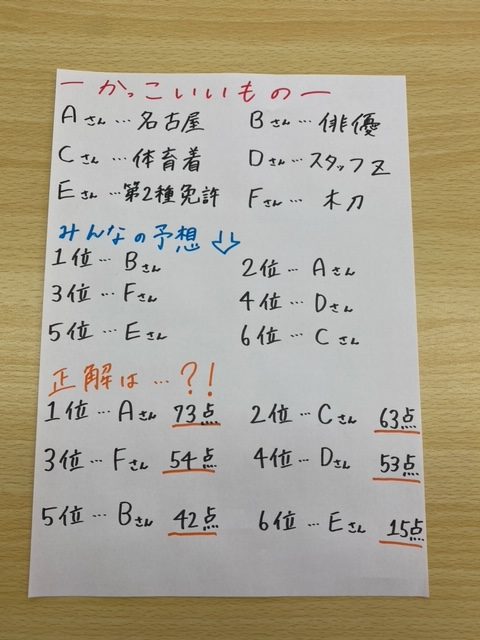 ーかっこいいものー
Aさん…名古屋 Bさん…俳優
Cさん…体育着 Dさん…スタッフZ
Eさん…第2種免許 Fさん…木刀
みんなの予想⇩
1位…Bさん 2位…Aさん
3位…Fさん 4位…Dさん
5位…Eさん 6位…Cさん
正解は…?!
1位…Aさん 73点 2位…Cさん 63点
3位…Fさん 54点 4位…Dさん 53点
5位…Bさん 42点 6位…Eさん 15点